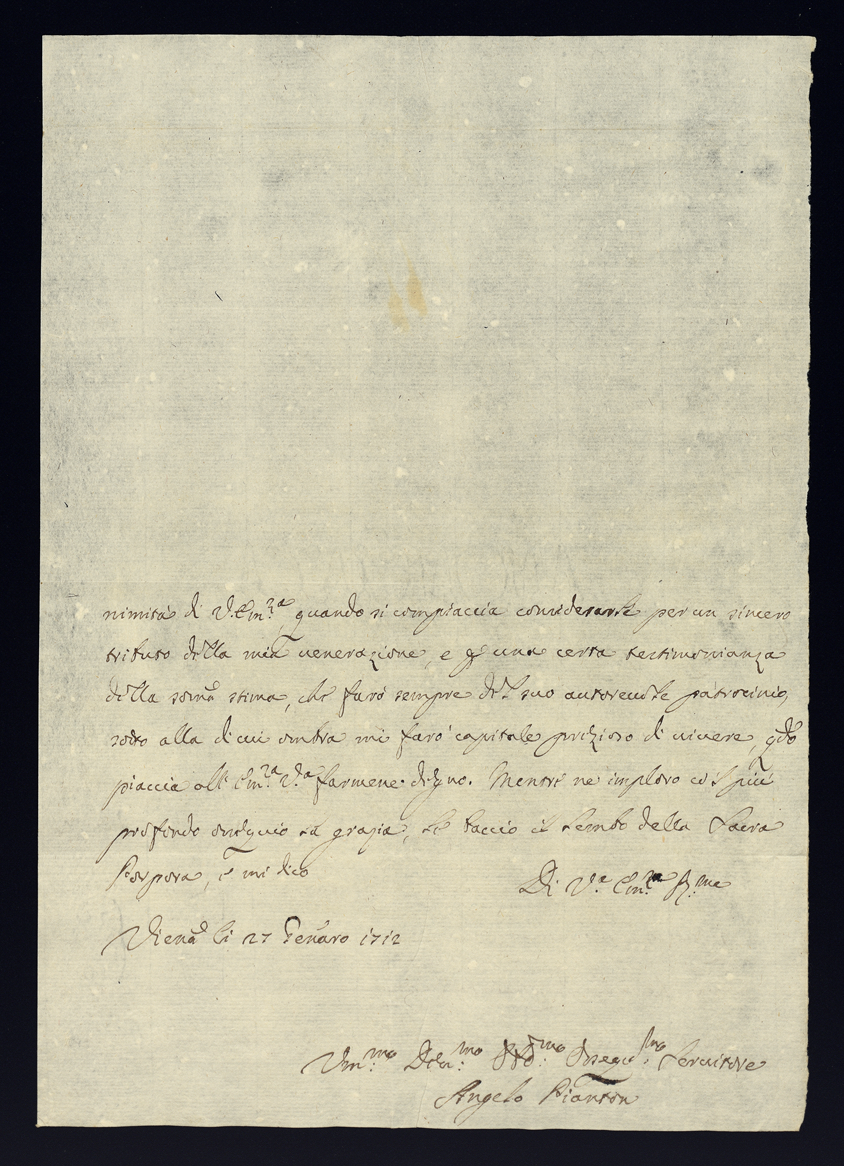 nimità di V. Em.za, quando si compiaccia considerarle per un sincero
tributo della mia venerazione, e p una certa testimonianza
della somã stima, che farò sempre del suo autorevole patrocinio,
sotto alla di cui ombra mi farò capitale prezioso di vivere, qdo
piaccia all' Em.za V.ra farmene degno. Mentre ne imploro col più
profondo ossequio la grazia, le baccio il lembo della Sacra
Porpora, e mi dico
Di V.ra Em.za R.ma
Vienã li 27 Genãro 1712
Um.mo Dev.mo Obb.mo Ossequ.mo Servitore
Angelo Pianton